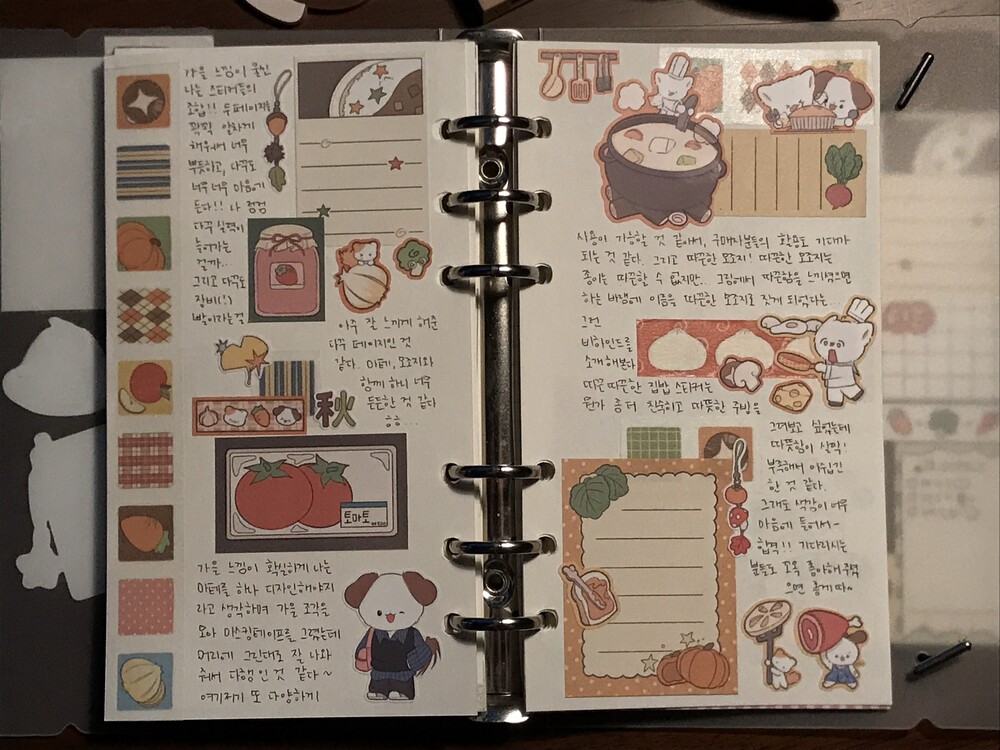 가을 느낌이 물씬
나는 스티커들의
조합!! 두페이지를
꽉꽉 알차게
채워서 너무
뿌듯하고, 다꾸도
너무 너무 마음에
든다!! 나 점점
다꾸 실력이
늘어가는
걸까..
그리고 다꾸도
장비(!)
빨이라는걸
아주 잘 느끼게 해준
다꾸 페이지인 것
같다. 마테, 모조지와
함께 하니 너무
든든한 것 같다
ㅎㅎ...
秋
토마토
가을 느낌이 확실하게 나는
마테를 하나 디자인해야지
라고 생각하며 가을 조각을
모아 마스킹테이프를 그렸는데
머리에 그린대로 잘 나와
줘서 다행인 것 같다~
여기저기 또 다양하게
사용이 가능할 것 같아서, 구매자분들의 활용도 기대가
되는 것 같다. 그리고 따끈한 모조지! 따끈한 모조지는
종이는 따끈할 수 없지만.. 그림에서 따끈함을 느끼셨으면
하는 바램에 이름을 따끈한 모조지로 짓게 되었다는...
그런
비하인드를
소개해본다
따끈따끈한 집밥 스티커는
뭔가 좀 더 진수하고 따뜻한 주방을
그려보고 싶었는데
따뜻함이 살짝!
부족해서 아쉽긴
한 것 같다.
그래도 색감이 너무
마음에 들어서~
합격!! 기다리시는
분들도 모옥 좋아해주셨
으면 좋겠다~